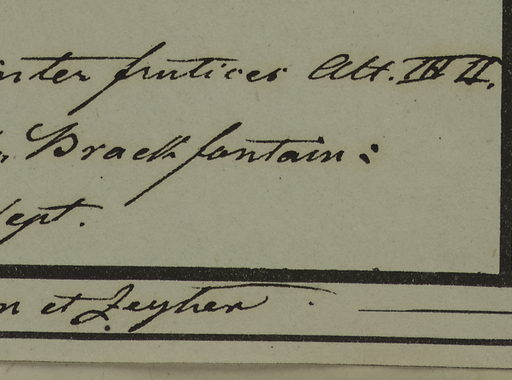 inter frutices Alt. III II.
Brackfontain:
Sept.
n et Zeyher.